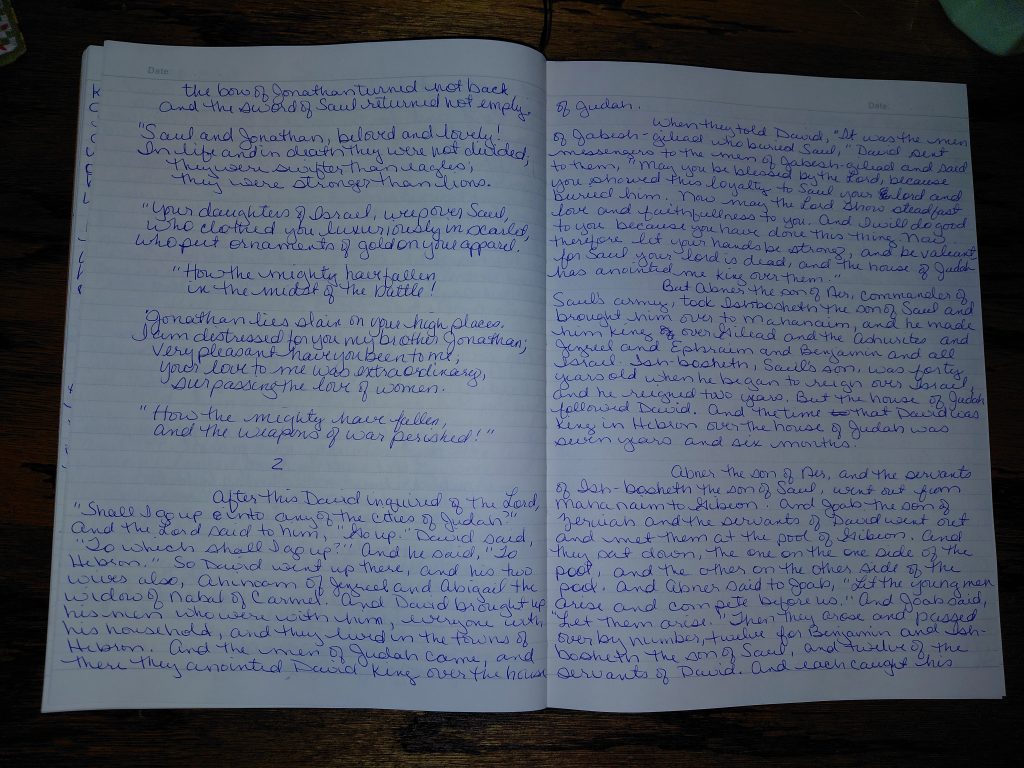 Date
the bow of Jonathan turned not back
and the sword of Saul returned not empty.
"Saul and Jonathan, beloved and lovely!
In life and in death they were not divided;
they were swifter than eagles;
they were stronger than lions.
"Your daughters of Israel, weep over Saul,
who clothed you luxuriously in scarlet,
who put ornaments of gold on your apparel.
"How the mighty have fallen
in the midst of the battle!
"Jonathan lies slain on your high places.
I am distressed for you my brother Jonathan;
very pleasant have you been to me,
your love to me was extraordinary,
surpassing the love of women.
"How the mighty have fallen,
and the weapons of war perished!"
2
After this David inquired of the Lord,
"Shall I go up into any of the cities of Judah?"
And the Lord said to him, "Go up." David said,
"To which shall I go up?" And he said, "To
Hebron." So David went up there, and his two
wives also, Ahinoam of Jezreel and Abigail the
widow of Nabal of Carmel. And David brought up
his men who were with him, everyone with
his household, and they lived in the towns of
Hebron. And the men of Judah came, and
there they anointed David king over the house
Date:
of Judah.
When they told David, "It was the men
of Jabesh-gilead who buried Saul," David sent
messengers to the men of Jabesh-gilead and said
to them, "May you be blessed by the Lord, because
you showed this loyalty to Saul your lord and
buried him. Now may the Lord show steadfast
love and faithfullness to you. And I will do good
to you because you have done this thing. Now
therefore let your hands be strong, and be valiant,
for Saul your lord is dead, and the house of Judah
has anointed me king over them."
But Abner the son of Ner, commander of
Saul's army, took Ish-bosheth the son of Saul and
brought him over to Mahanaim, and he made
him king over Gilead and the Ashurites and
Jezreel and Ephraim and Benjamin and all
Israel. Ish-bosheth, Saul's son, was forty
years old when he began to reign over Israel,
and he reigned two years. But the house of Judah
followed David. And the time that David was
king in Hebron over the house of Judah was
seven years and six months.
Abner the son of Ner, and the servants
of Ish-bosheth the son of Saul, went out from
Mahanaim to Gibeon. And Joab the son of
Zeruiah and the servants of David went out
and met them at the pool of Gibeon. And
they sat down, the one on the one side of the
pool, and the other on the other side of the
pool. And Abner said to Joab, "Let the young men
arise and compete before us." And Joab said,
"Let them arise." Then they arose and passed
over by number, twelve for Benjamin and Ish-
bosheth the son of Saul, and twelve of the
servants of David. And each caught his